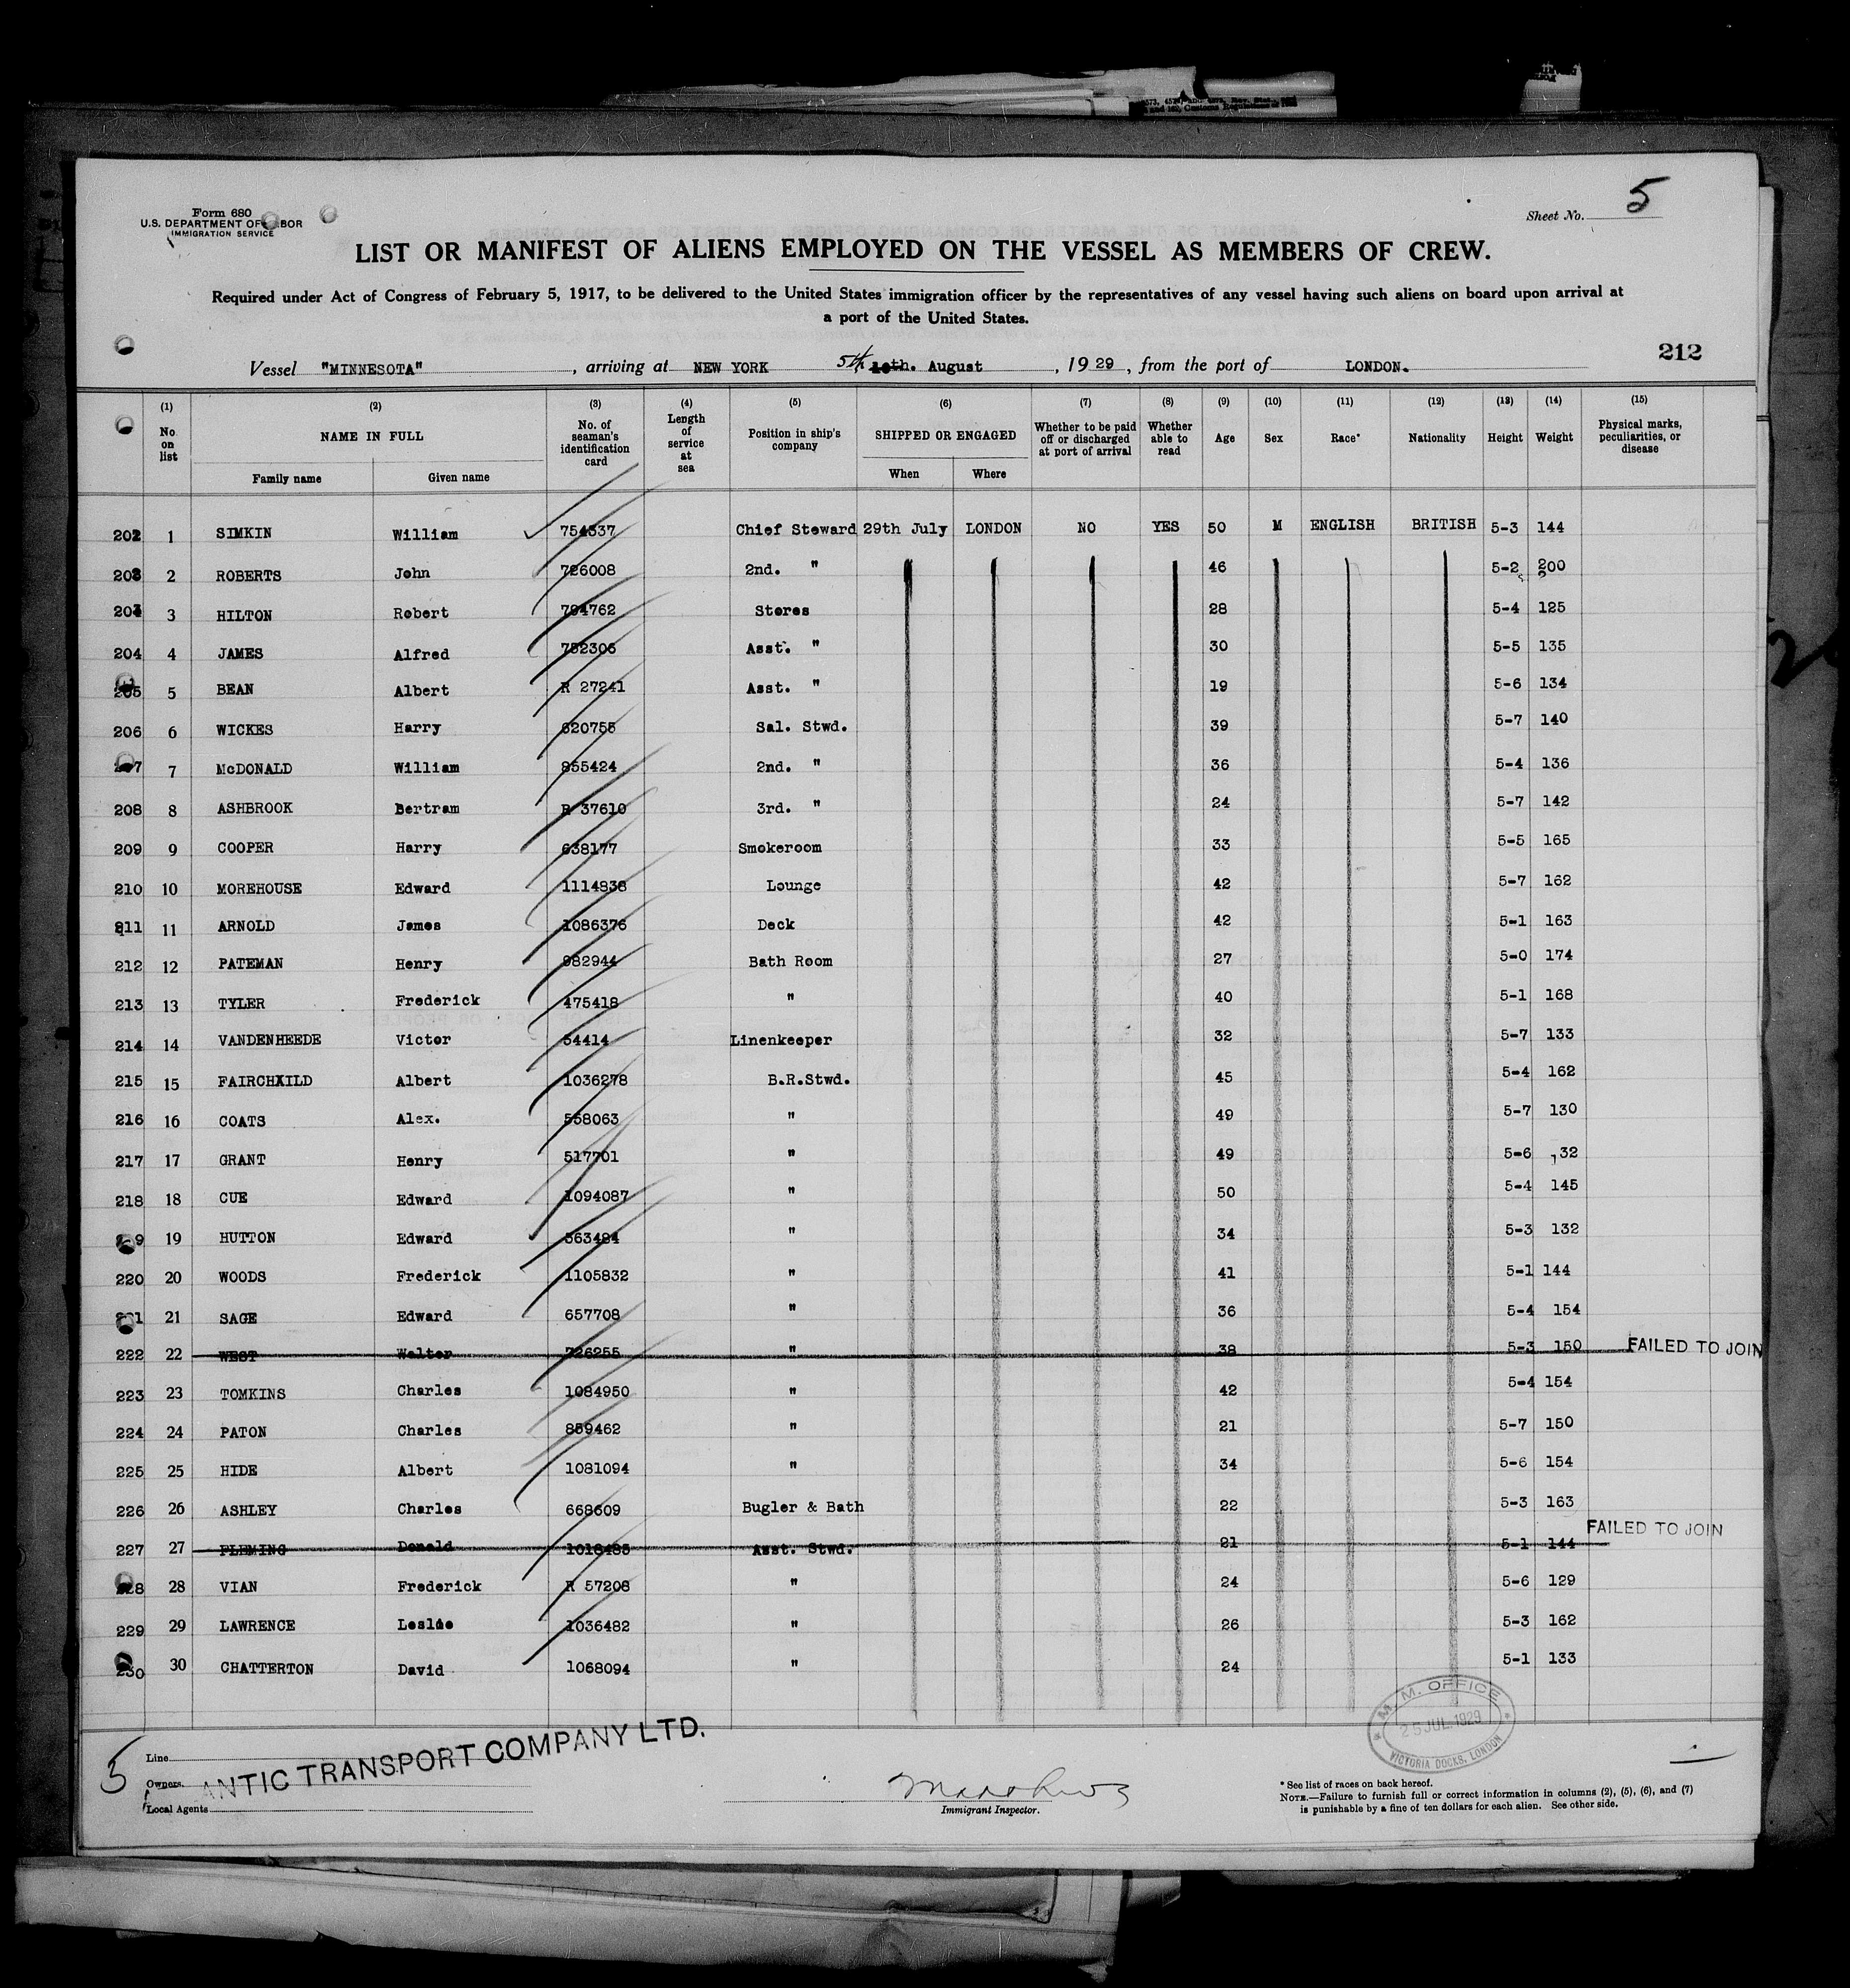 Form 680
U.S. DEPARTMENT OF LABOR
IMMIGRATION SERVICE
Sheet No. 5
LIST OR MANIFEST OF ALIENS EMPLOYED ON THE VESSEL AS MEMBERS OF CREW.
Required under Act of Congress of February 5, 1917, to be delivered to the United States immigration officer by the representatives of any vessel having such aliens on board upon arrival at
a port of the United States.
212
Vessel "MINNESOTA", arriving at NEW YORK 5th August, 1929, from the port of LONDON.
(1) (2) (3) (4) (5) (6) (7) (8) (9) (10) (11) (12) (13) (14) (15)
No. on list NAME IN FULL No. of seaman's identification card Length of service at sea Position in ship's company SHIPPED OR ENGAGED Whether to be paid off or discharged at port of arrival Whether able to read Age Sex Race* Nationality Height Weight Physical marks, peculiarities, or disease
Family name Given name When Where
202 1 SIMKIN William 754537 Chief Steward 29th July LONDON NO YES 50 M ENGLISH BRITISH 5-3 144
203 2 ROBERTS John 726008 2nd. " 46 5-2 200
203 3 HILTON Robert 794762 Stores 28 5-4 125
204 4 JAMES Alfred 752306 Asst. " 30 5-5 135
205 5 BEAN Albert R 27241 Asst. " 19 5-6 134
206 6 WICKES Harry 620755 Sal. Stwd. 39 5-7 140
207 7 McDONALD William 855424 2nd. " 36 5-4 136
208 8 ASHBROOK Bertram R 37610 3rd. " 24 5-7 142
209 9 COOPER Harry 638177 Smokeroom 33 5-5 165
210 10 MOREHOUSE Edward 1114838 Lounge 42 5-7 162
211 11 ARNOLD James 1086376 Deck 42 5-1 163
212 12 PATEMAN Henry 982944 Bath Room 27 5-0 174
213 13 TYLER Frederick 475418 " 40 5-1 168
214 14 VANDENHEEDE Victor 54414 Linenkeeper 32 5-7 133
215 15 FAIRCHXILD Albert 1036278 B.R.Stwd. 45 5-4 162
216 16 COATS Alex. 558063 " 49 5-7 130
217 17 GRANT Henry 517701 " 49 5-6 132
218 18 CUE Edward 1094087 " 50 5-4 145
219 19 HUTTON Edward 563484 " 34 5-3 132
220 20 WOODS Frederick 1105832 " 41 5-1 144
221 21 SAGE Edward 657708 " 36 5-4 154
222 22 WEST Walter 726255 " 38 5-3 150 FAILED TO JOIN
223 23 TOMKINS Charles 1084950 " 42 5-4 154
224 24 PATON Charles 859462 " 21 5-7 150
225 25 HIDE Albert 1081094 " 34 5-6 154
226 26 ASHLEY Charles 668609 Bugler & Bath 22 5-3 163
227 27 FLEMING Donald 1018485 Asst. Stwd. 21 5-1 144 FAILED TO JOIN
228 28 VIAN Frederick R 57208 " 24 5-6 129
229 29 LAWRENCE Leslie 1036482 " 26 5-3 162
230 30 CHATTERTON David 1068094 " 24 5-1 133
M. M. OFFICE
25 JUL 1929
VICTORIA DOCKS, LONDON
5
Line
Owners ANTIC TRANSPORT COMPANY LTD.
Local Agents
Immigrant Inspector.
* See list of races on back hereof.
NOTE.—Failure to furnish full or correct information in columns (2), (5), (6), and (7)
is punishable by a fine of ten dollars for each alien. See other side.